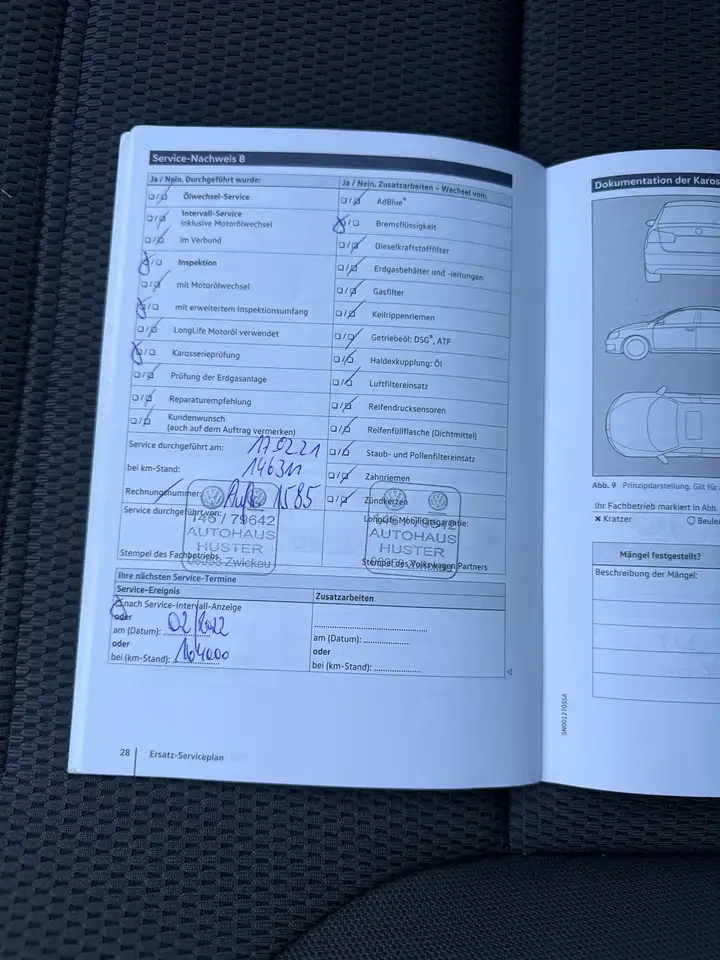 Service-Nachweis 8
Ja / Nein. Durchgeführt wurde:
Ölwechsel-Service
Intervall-Service
inklusive Motorölwechsel
im Verbund
Inspektion
mit Motorölwechsel
mit erweitertem Inspektionsumfang
LongLife Motoröl verwendet
Karosserieprüfung
Prüfung der Erdgasanlage
Reparaturempfehlung
Kundenwunsch
(auch auf dem Auftrag vermerken)
Service durchgeführt am: 17.02.21
bei km-Stand: 146311
Rechnungsnummer: 1585
Service durchgeführt von:
146 / 79642
AUTOHAUS
HUSTER
08058 Zwickau
Stempel des Fachbetriebs
Ja / Nein. Zusatzarbeiten – Wechsel von:
AdBlue®
Bremsflüssigkeit
Dieselkraftstofffilter
Erdgasbehälter und -leitungen
Gasfilter
Keilrippenriemen
Getriebeöl: DSG®, ATF
Haldexkupplung: Öl
Luftfiltereinsatz
Reifendrucksensoren
Reifenfüllflasche (Dichtmittel)
Staub- und Pollenfiltereinsatz
Zahnriemen
Zündkerzen
LongLife Mobilitätsgarantie:
146 / 79642
AUTOHAUS
HUSTER
08058 Zwickau
Stempel des Volkswagen Partners
Ihre nächsten Service-Termine
Service-Ereignis
nach Service-Intervall-Anzeige
oder
am (Datum): 02/2022
oder
bei (km-Stand): 164000
Zusatzarbeiten
am (Datum):
oder
bei (km-Stand):
28 Ersatz-Serviceplan
Dokumentation der Karos
Abb. 9 Prinzipdarstellung. Gilt für
Ihr Fachbetrieb markiert in Abb.
Kratzer Beule
Mängel festgestellt?
Beschreibung der Mängel: